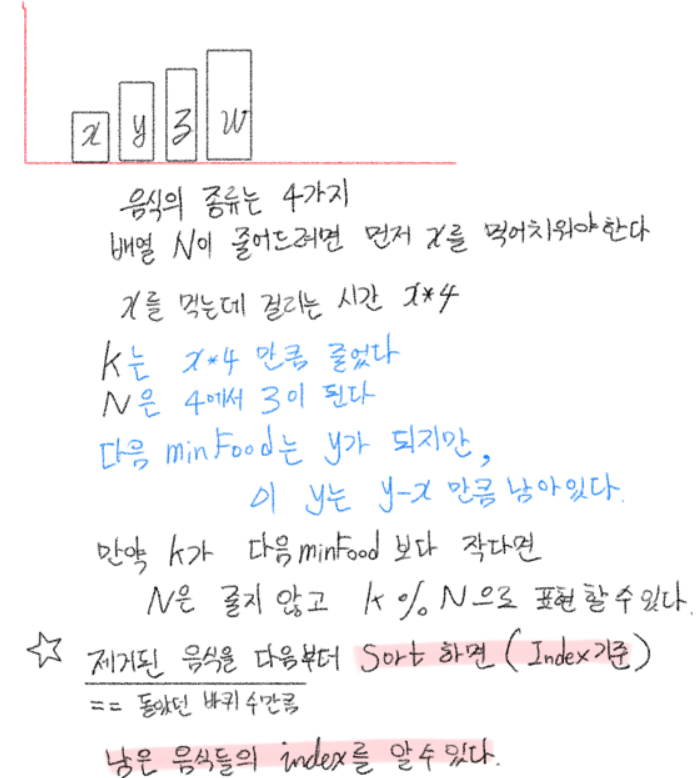 x y z w
음식의 종류는 4가지
배열 N이 줄어드려면 먼저 x를 먹어치워야한다
x를 먹는데 걸리는 시간 x*4
k는 x*4 만큼 줄었다
N은 4에서 3이 된다
다음 minFood는 y가 되지만,
이 y는 y-x 만큼 남아있다.
만약 k가 다음minFood 보다 작다면
N은 줄지 않고 k % N으로 표현 할 수 있다.
☆ 제거된 음식을 다음부터 Sort 하면 (Index기준)
== 돌았던 바퀴 수만큼
남은 음식들의 index를 알 수 있다.